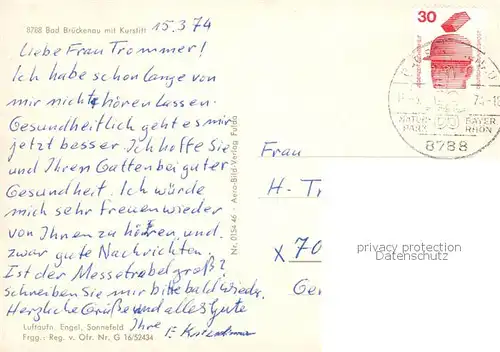 8788 Bad Brückenau mit Kurstift
15.3.74
Liebe Frau Trommer!
Ich habe schon lange von
mir nicht hören lassen.
Gesundheitlich geht es mir
jetzt besser. Ich hoffe Sie
und Ihren Gatten bei guter
Gesundheit. Ich würde
mich sehr freuen wieder
von Ihnen zu hören und
zwar gute Nachrichten.
Ist der Messetrubel groß?
schreiben Sie mir bitte bald wieder.
Herzliche Grüße und alles Gute
Ihre E.
Luftaufn. Engel, Sonnefeld
Frgg.- Reg. v. Ofr. Nr. G 16/52434
Nr. 0154 46 - Aero-Bild-Verlag Fulda
30
DEUTSCHE BUNDESPOST
NATUR-
PARK
BAYER.
RHÖN
8788
Frau
H- Tr
x 70
Ge
privacy protection
Datenschutz